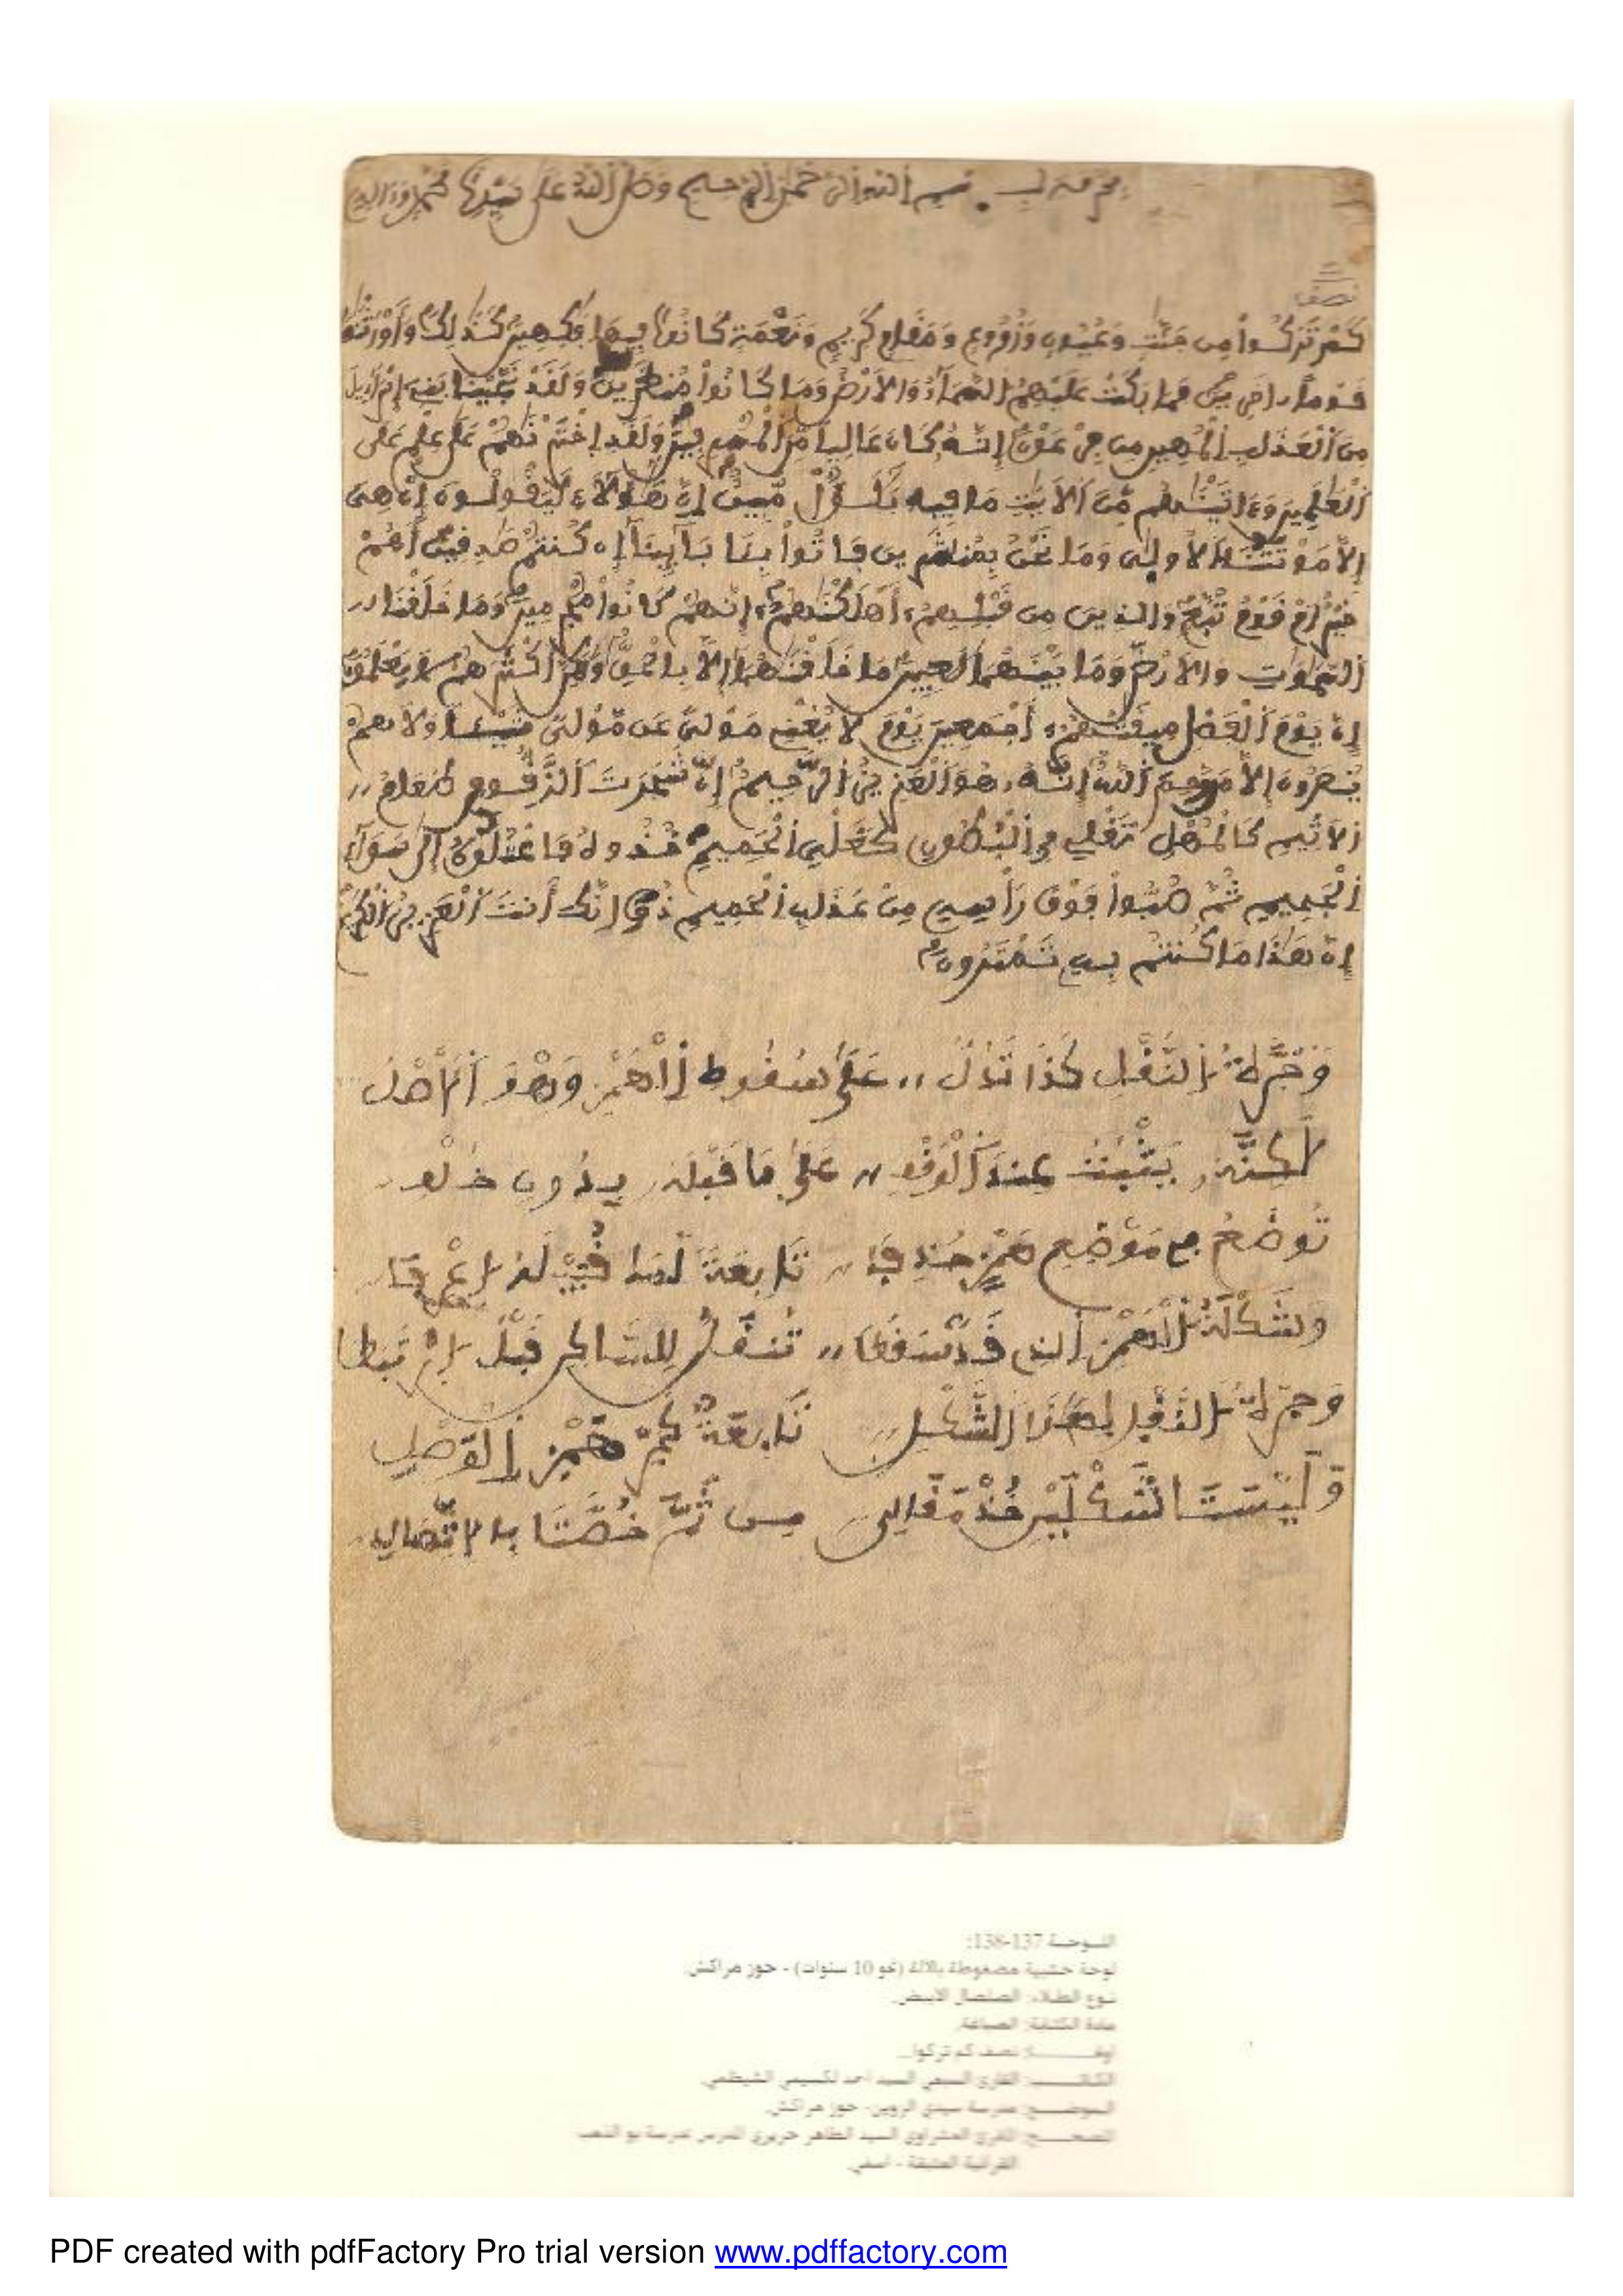 بسم الله الرحمن الرحيم وصلى الله على سيدنا محمد وءاله
نصف
كَمْ تَرَكُواْ مِن جَنَّٰتٖ وَعُيُونٖ وَزُرُوعٖ وَمَقَامٖ كَرِيمٖ وَنَعْمَةٖ كَانُواْ فِيهَا فَٰكِهِينَ كَذَٰلِكَ وَأَوْرَثْنَٰهَا
قَوْماً ـاخَرِينَ فَمَا بَكَتْ عَلَيْهِمُ السَّمَآءُ وَالَارْضُ وَمَا كَانُواْ مُنظَرِينَ وَلَقَدْ نَجَّيْنَا بَنِےٓ إِسْرَآءِيلَ
مِنَ اَلْعَذَابِ اِلْمُهِينِ مِن فِرْعَوْنَ إِنَّهُۥ كَانَ عَالِياٗ مِّنَ اَلْمُسْرِفِينَ وَلَقَدِ اِخْتَرْنَٰهُمْ عَلَىٰ عِلْمٍ عَلَى
اَلْعَٰلَمِينَ وَءَاتَيْنَٰهُم مِّنَ اَلَايَٰتِ مَا فِيهِ بَلَٰٓؤٌاْ مُّبِينٌ إِنَّ هَٰٓؤُلَآءِ لَيَقُولُونَ إِنْ هِيَ
إِلَّا مَوْتَتُنَا اَلُاولَىٰ وَمَا نَحْنُ بِمُنشَرِينَ فَاتُواْ بِـَٔابَآئِنَآ إِن كُنتُمْ صَٰدِقِينَ أَهُمْ
خَيْرٌ اَمْ قَوْمُ تُبَّعٖ وَالذِينَ مِن قَبْلِهِمُۥٓ أَهْلَكْنَٰهُمُۥٓ إِنَّهُمْ كَانُواْ مُجْرِمِينَ وَمَا خَلَقْنَا
اَلسَّمَٰوَٰتِ وَالَارْضَ وَمَا بَيْنَهُمَا لَٰعِبِينَ مَا خَلَقْنَٰهُمَآ إِلَّا بِالْحَقِّ وَلَٰكِنَّ أَكْثَرَهُمْ لَا يَعْلَمُونَ
إِنَّ يَوْمَ اَلْفَصْلِ مِيقَٰتُهُمُۥٓ أَجْمَعِينَ يَوْمَ لَا يُغْنِے مَوْلىً عَن مَّوْلىٗ شَيْـٔاٗ وَلَا هُمْ
يُنصَرُونَ إِلَّا مَن رَّحِمَ اَللَّهُ إِنَّهُۥ هُوَ اَلْعَزِيزُ اُلرَّحِيمُ إِنَّ شَجَرَتَ اَلزَّقُّومِ طَعَامُ
اُلَاثِيمِ كَالْمُهْلِ تَغْلِے فِے اِلْبُطُونِ كَغَلْيِ اِلْحَمِيمِ خُذُوهُ فَاعْتُلُوهُ إِلَىٰ سَوَآءِ
اِلْجَحِيمِ ثُمَّ صُبُّواْ فَوْقَ رَأْسِهِۦ مِنْ عَذَابِ اِلْحَمِيمِ ذُقِ اِنَّكَ أَنتَ اَلْعَزِيزُ اُلْكَرِيمُ
إِنَّ هَٰذَا مَا كُنتُم بِهِۦ تَمْتَرُونَ
وَجَرَّةُ اُلنَّقْلِ كَذَا تَدُلُّ ،، عَلَىٰ سُقُوطِ اِلْهَمْزِ وَهْوَ اَلَاصْلُ
لَٰكِنَّهُۥ يَثْبُتُ عِندَ اَلْوَقْفِ ،، عَلَىٰ مَا قَبْلَهُۥ بِدُونِ خُلْفِ
تُوضَعُ فِے مَوْضِعِ هَمْزٍ حُذِفَا ،، تَابِعَةً لِمَا قُبَيْلَهُ اُعْرِفَا
وَشَكْلَةُ اُلْهَمْزِ اَلذِي قَدْ سَقَطَا ،، تُنقَلُ لِلسَّاكِنِ قَبْلُ اُرْتَبَطَا
وَجَرَّةُ اُلنَّقْلِ بِهَٰذَا اَلشَّكْلِ تَابِعَةٌ كَجَرِّ هَمْزِ اِلْوَصْلِ
وَلَيْسَتَا شَكْلَيْنِ خُذْ مَقَالِي مِن ثَمَّ خُصَّتَا بِالِاتِّصَالِ
اللوحة 137-138:
لوحة خشبية مضغوطة بالآلة (نحو 10 سنوات) - حوز مراكش.
نوع الطلاء: الصلصال الأبيض.
مادة الكتابة: الصماغة.
نصف كم تركوا...
الكاتب: القارئ السبعي السيد أحمد لكسيمي الشيظمي.
الموضع: مدرسة سيدي الزوين- حوز مراكش.
المصحح: المقرئ العشراوي السيد الطاهر حريري المدرس بمدرسة بو الذهب
القرآنية العتيقة - آسفي.
PDF created with pdfFactory Pro trial version www.pdffactory.com